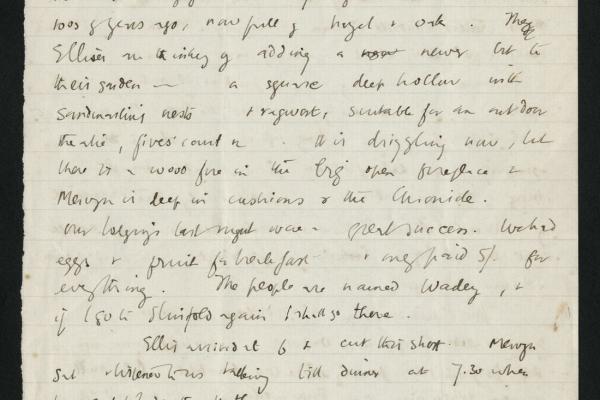 100s of years ago, now full of hazel & oak. The
Ellises are thinking of adding a new newer bit to
their garden — a square deep hollow with
Sandmartins nests & ragwort, suitable for an outdoor
theatre, fives court or . It is drizzling now, but
there is a wood fire in the big open fireplace &
Mervyn is deep in cushions & the Chronicle.
Our lodgings last night were a great success. We had
eggs & fruit for breakfast & only paid 5/. for
everything. The people are named Wadey, &
if I go to Slinfold again I shall go there.
Ellis arrived at 6 & cut this short. Mervyn
sat & listened to us talking till dinner at 7.30 when